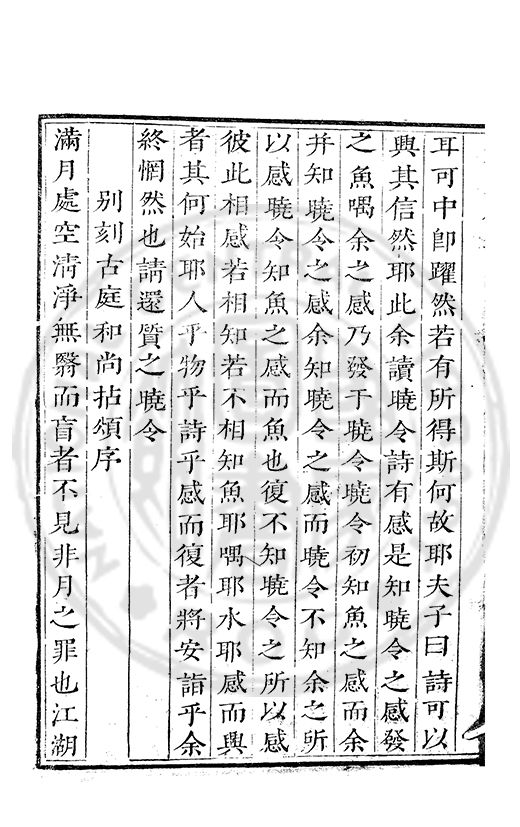 耳可中卽躍然若有所得斯何故耶夫子曰詩可以
興其信然耶此余讀曉令詩有感是知曉令之感發
之魚喁余之感乃發于曉令曉令初知魚之感而余
并知曉令之感余知曉令之感而曉令不知余之所
以感曉令知魚之感而魚也復不知曉令之所以感
彼此相感若相知若不相知魚耶喁耶水耶感而興
者其何始耶人乎物乎詩乎感而復者將安詣乎余
終惘然也請還質之曉令
別刻古庭和尚拈頌序
滿月處空清淨無翳而盲者不見非月之罪也江湖